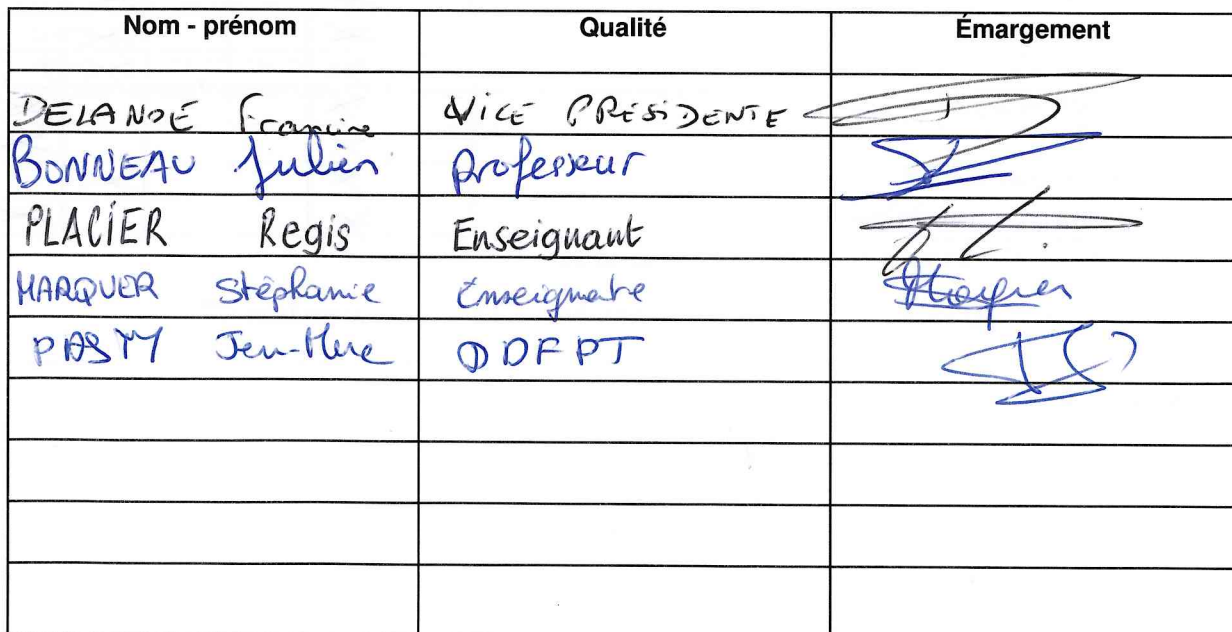 Nom - prénom Qualité Émargement
DELANOE Francine VICE PRESIDENTE
BONNEAU Julien professeur
PLACIER Regis Enseignant
MARQUER Stéphanie Enseignante
PASTY Jean-Marc DDFPT